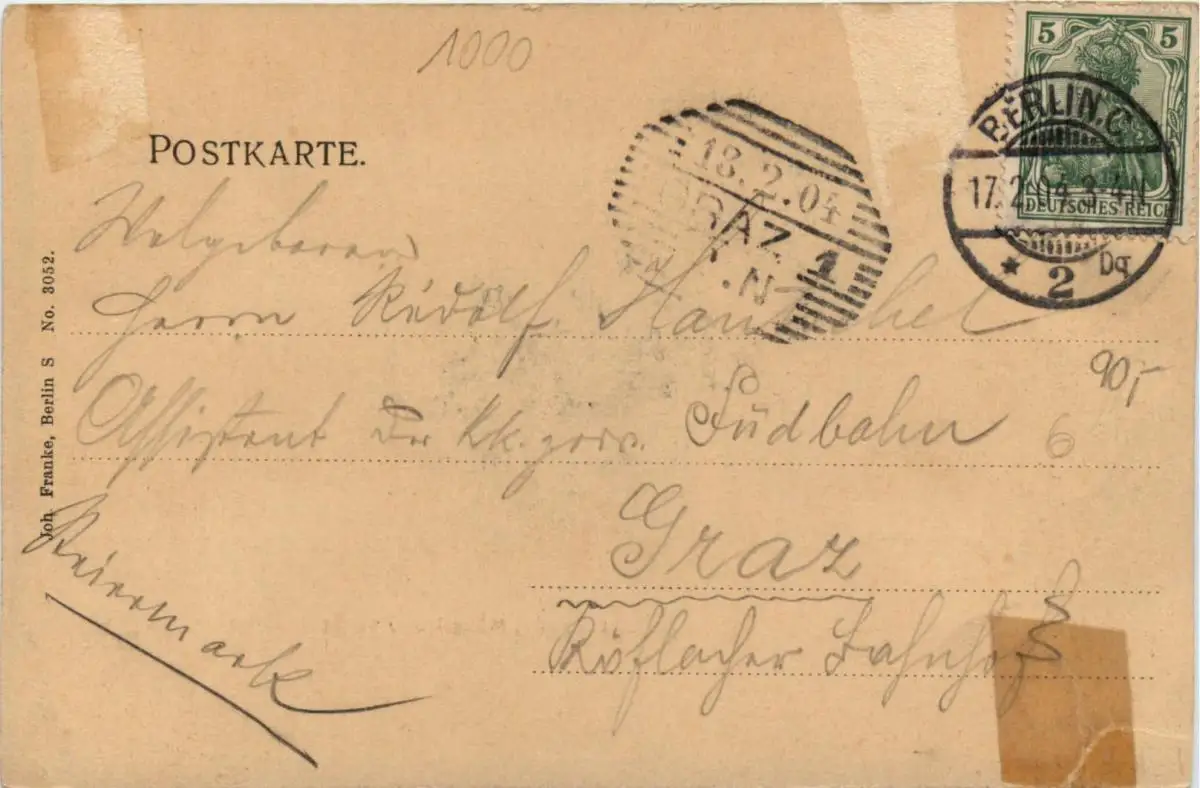 1000
POSTKARTE.
5 5
DEUTSCHES REICH
BERLIN.C.
17.2.04.3-4N
* 2 Dq
18.2.04
GRAZ 1
.N
Herrn Rudolf
Assistent der kk. priv. Südbahn
Graz
Köflacher Bahnhof
Steiermark
90,-
6
Joh. Franke, Berlin S No. 3052.